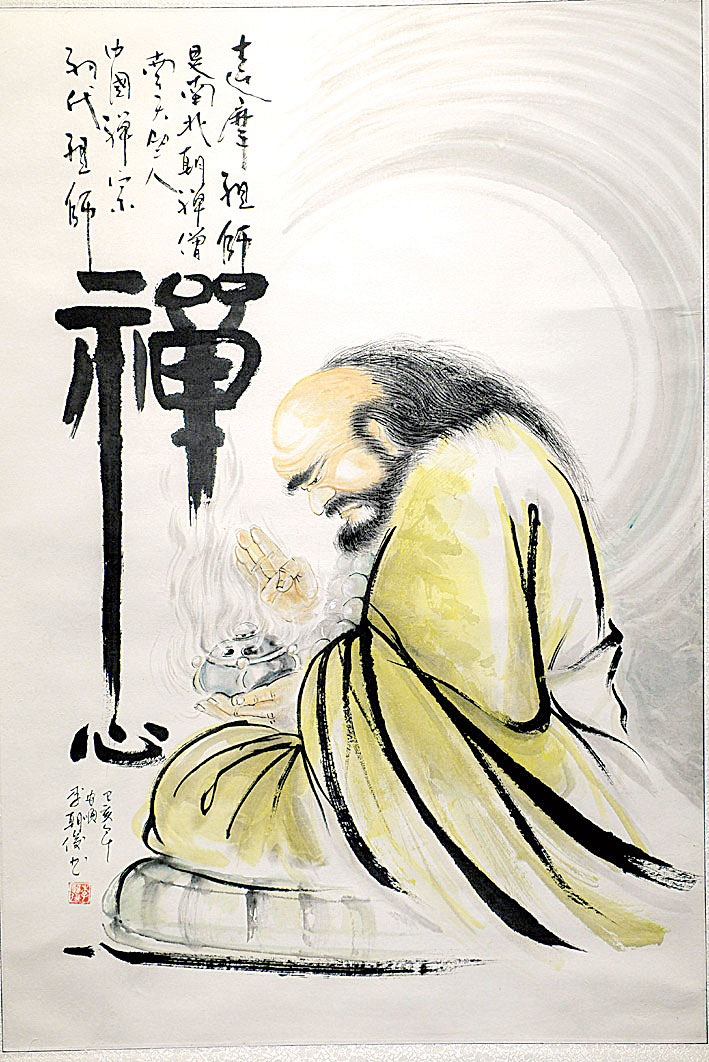 達摩祖師
是南北朝禪僧
人
中國禪宗
初代祖師
禪心
己亥年
李朝俊書